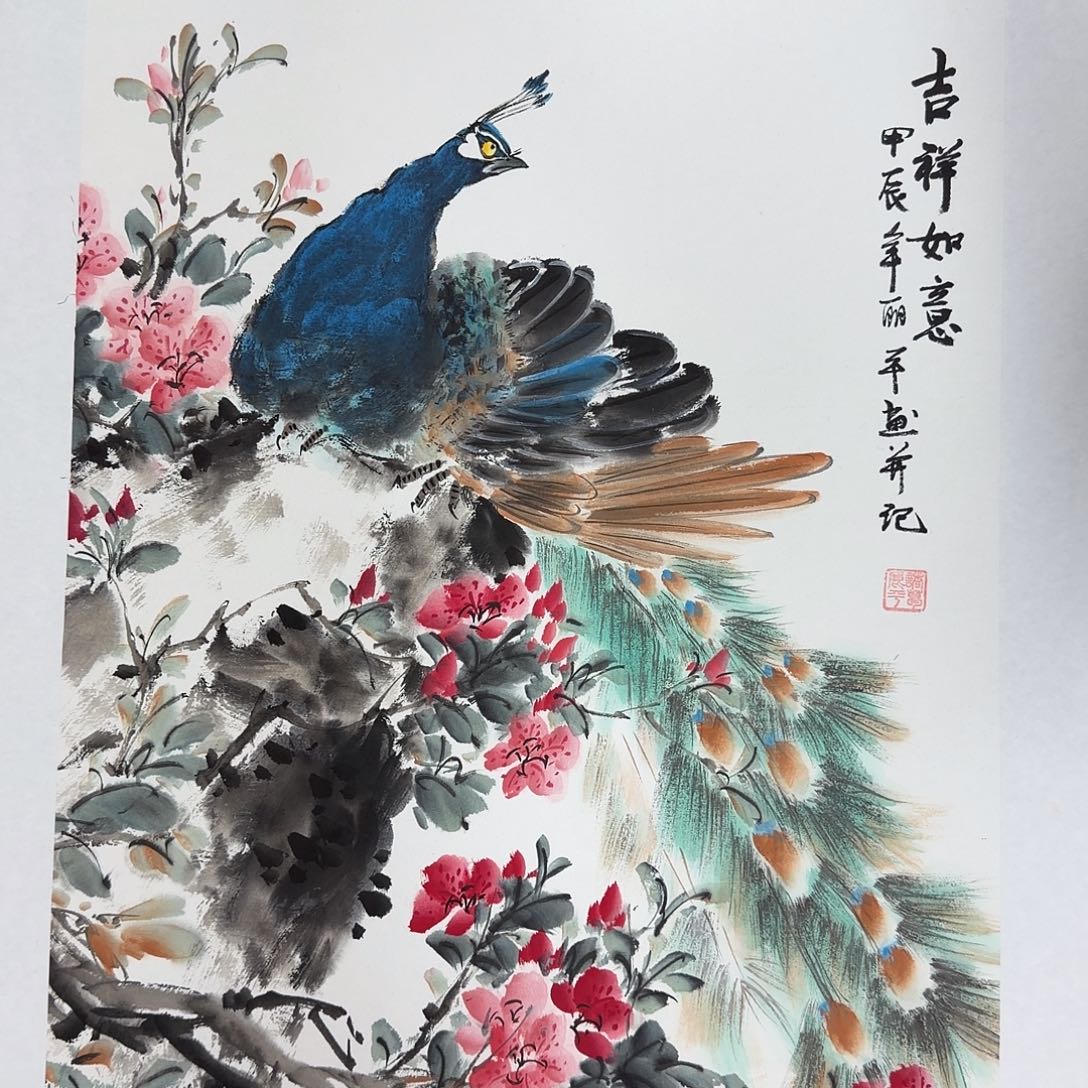 吉祥如意
甲辰年丽平画并记